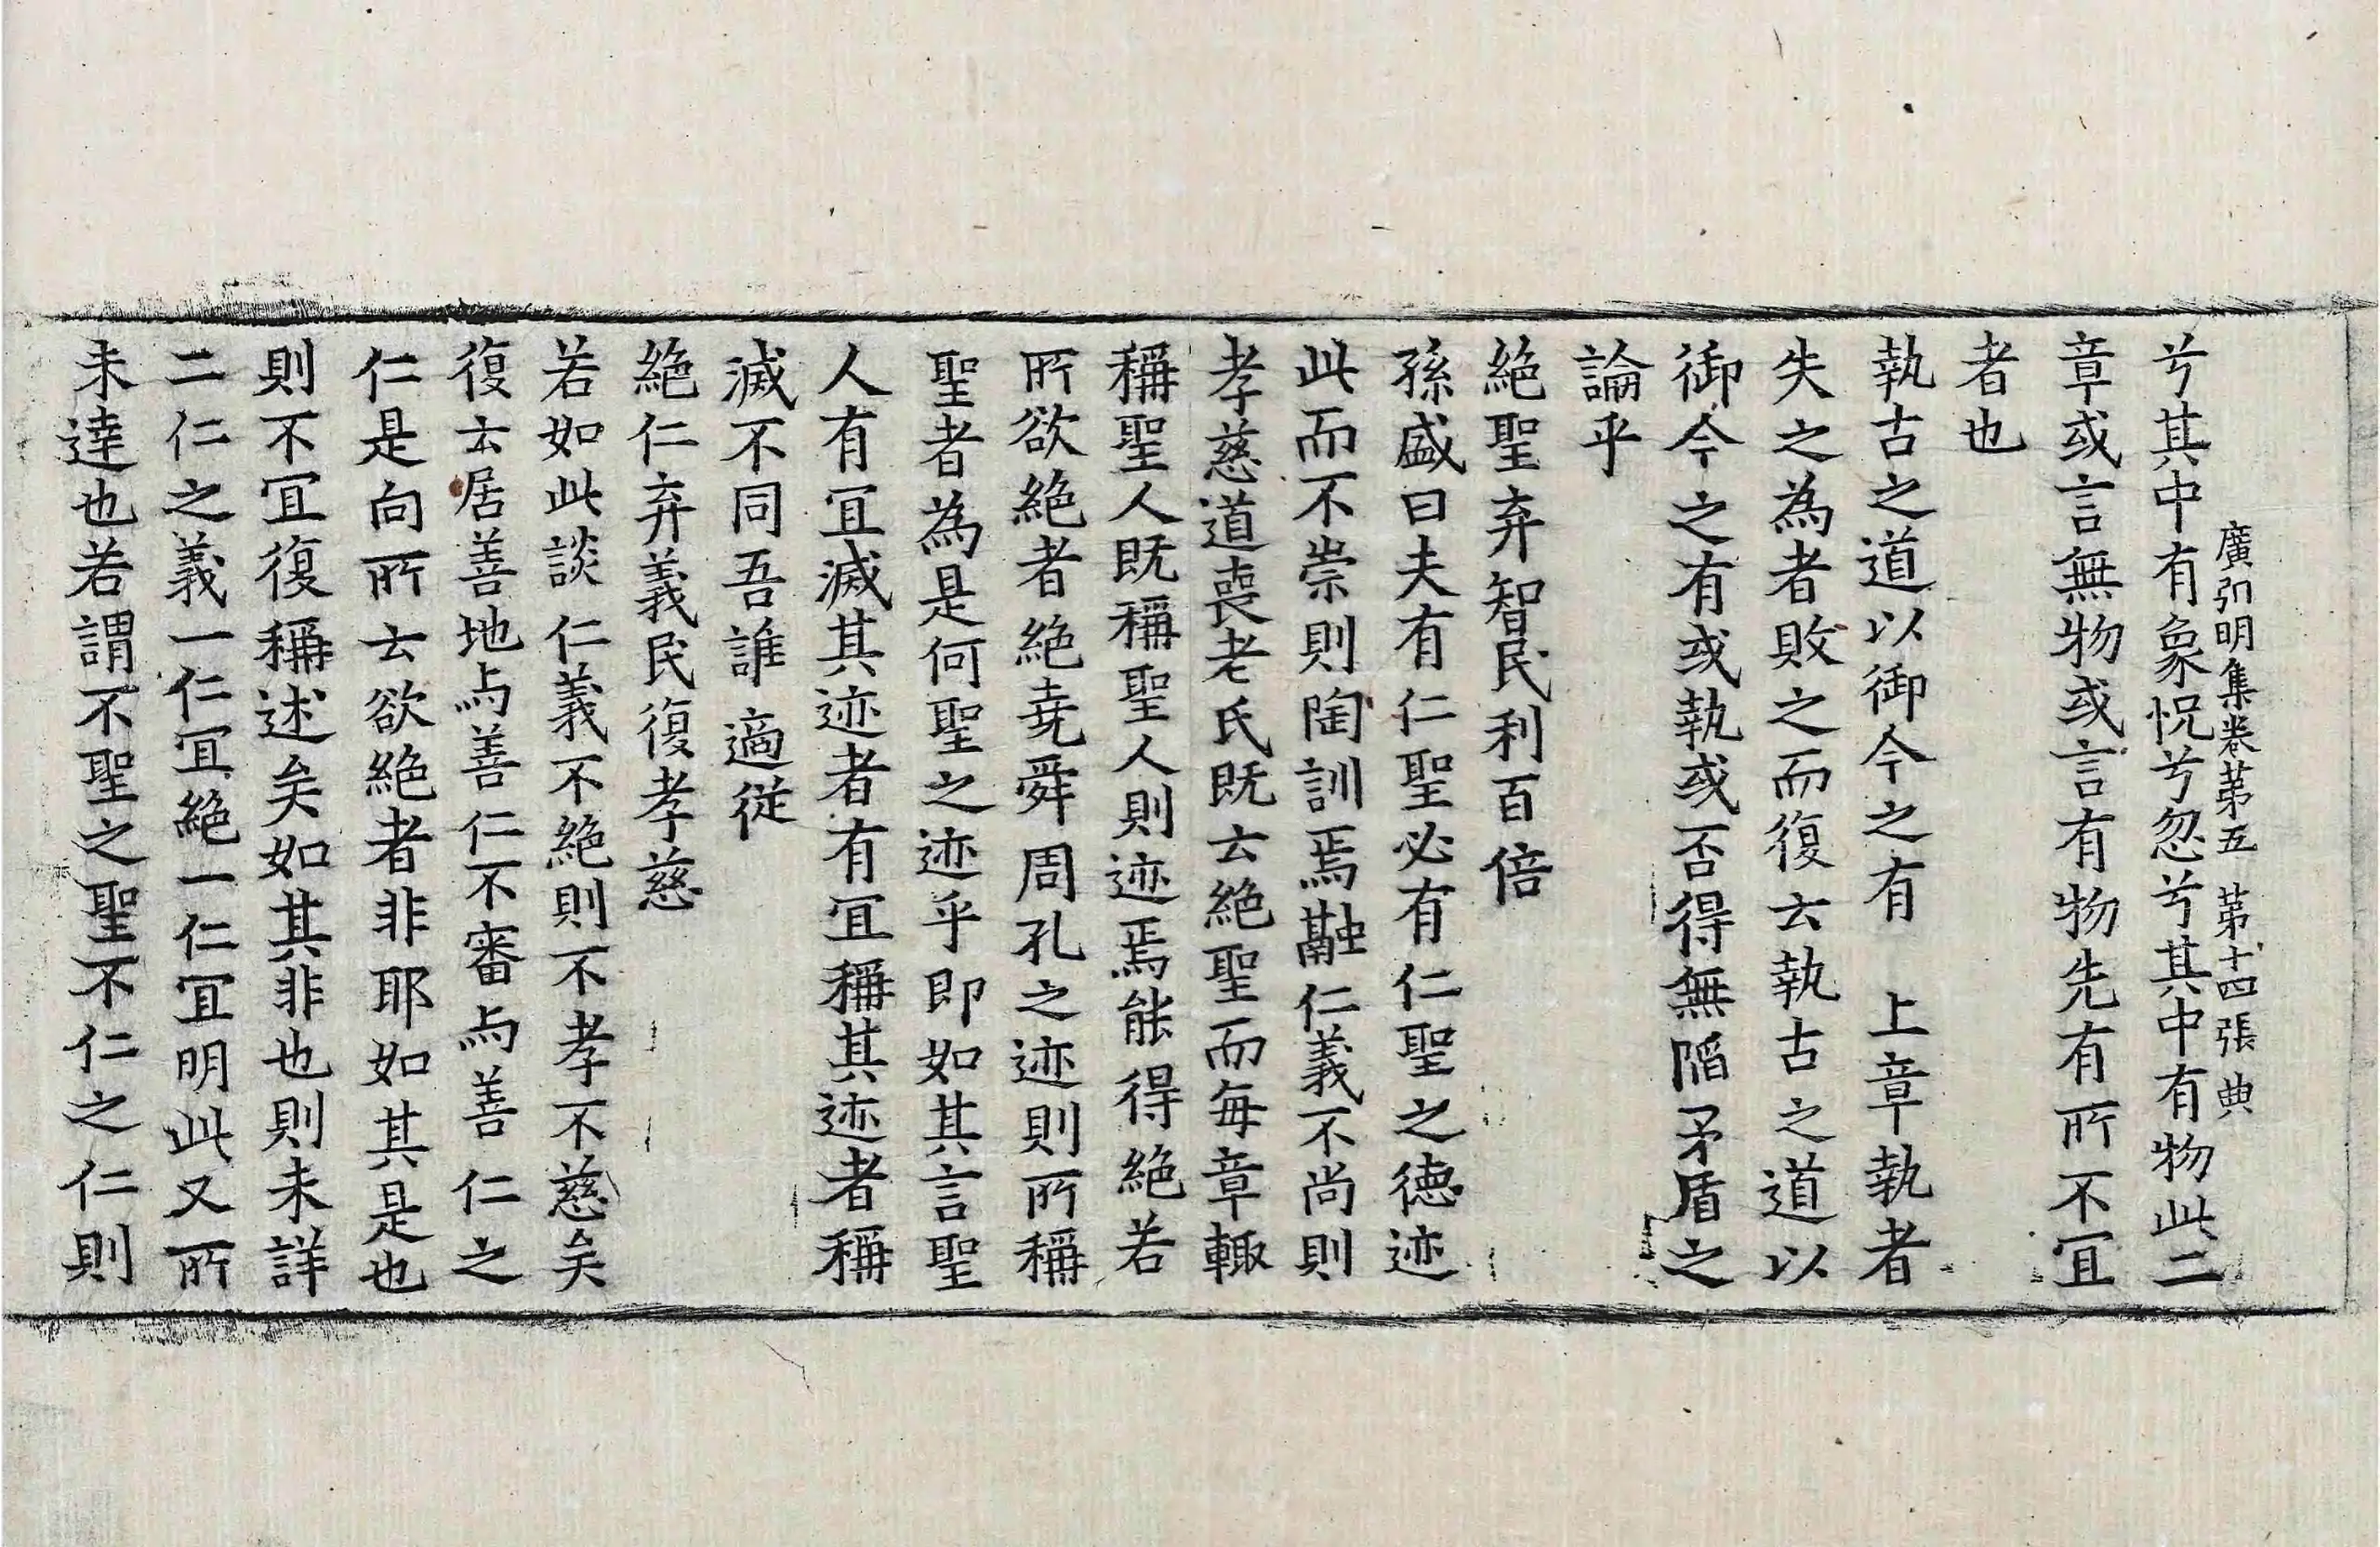 廣弘明集卷苐五 苐十四張 典
兮其中有象怳兮忽兮其中有物此二
章或言無物或言有物先有所不冝
者也
執古之道以御今之有 上章執者
失之為者敗之而復云執古之道以
御今之有或執或否得無陷矛盾之
論乎
絕聖弃智民利百倍
孫盛曰夫有仁聖必有仁聖之德迹
此而不崇則陶訓焉融仁義不尚則
孝慈道喪老氏既云絕聖而每章輙
稱聖人既稱聖人則迹焉能得絕若
所欲絕者絕堯舜周孔之迹則所稱
聖者為是何聖之迹乎即如其言聖
人有冝滅其迹者有冝稱其迹者稱
滅不同吾誰適從
絕仁弃義民復孝慈
若如此談仁義不絕則不孝不慈矣
復云居善地与善仁不審与善仁之
仁是向所云欲絕者非耶如其是也
則不冝復稱述矣如其非也則未詳
二仁之義一仁冝絕一仁冝明此又所
未達也若謂不聖之聖不仁之仁則